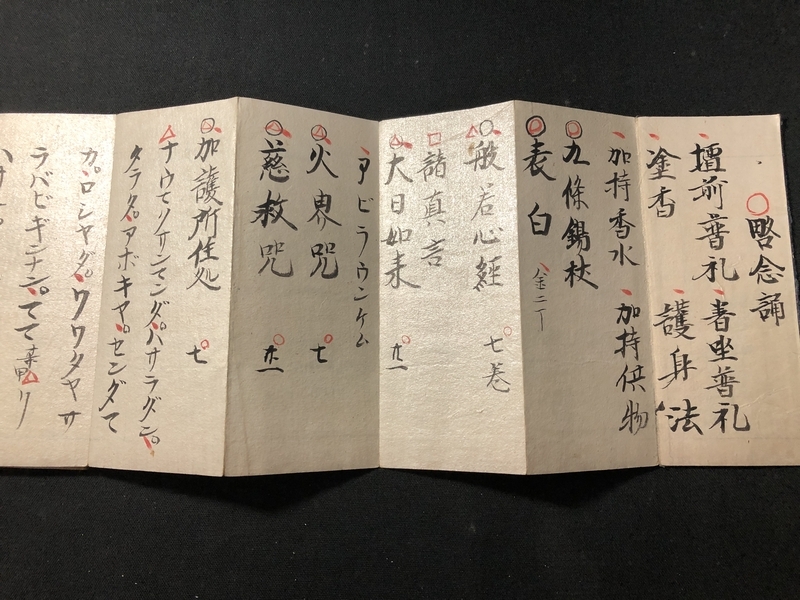 略念誦
壇前普礼 着坐普礼
塗香 護身法
加持香水 加持供物
九條錫杖
表白 金二丁
般若心經 七巻
諸真言
大日如来 廿一
アビラウンケム
火界咒 七
慈救咒 廿一
加護所住処 七
ナウマリサンマンダバサラダン
タラタアボキヤセンダマ
カロシヤダ ワワタヤサ
ラバビギナン